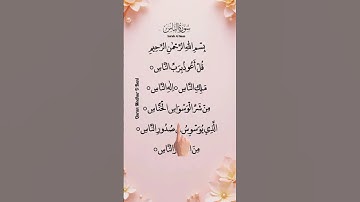 سورة الناس
Surah Al Naas
بِسْمِ اللهِ الرَّحْمٰنِ الرَّحِيْمِ
قُلْ اَعُوْذُ بِرَبِّ النَّاسِ ○
مَلِكِ النَّاسِ ○ اِلٰهِ النَّاسِ ○
مِنْ شَرِّ الْوَسْوَاسِ الْخَنَّاسِ ○
الَّذِيْ يُوَسْوِسُ صُدُوْرِ النَّاسِ ○
مِنَ النَّاسِ ○